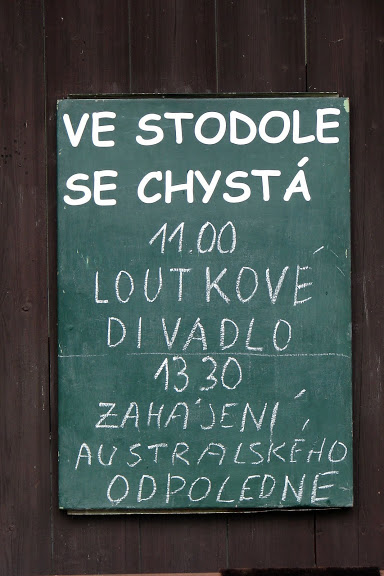 VE STODOLE
SE CHYSTÁ
11.00
LOUTKOVÉ
DIVADLO
13 30
ZAHÁJENÍ
AUSTRALSKÉHO
ODPOLEDNE